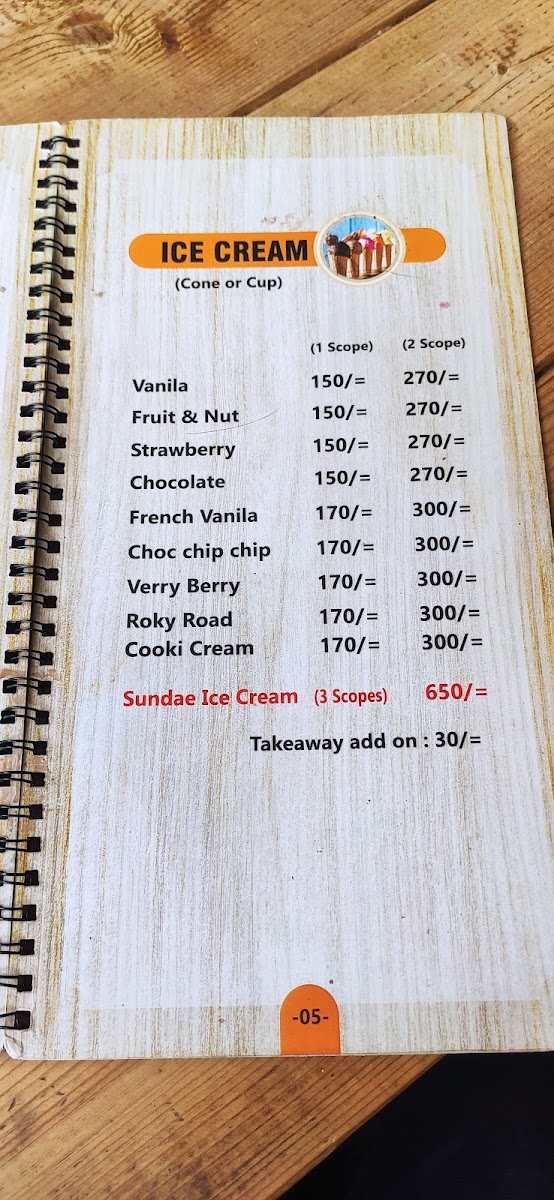 ICE CREAM
(Cone or Cup)
(1 Scope) (2 Scope)
Vanila 150/= 270/=
Fruit & Nut 150/= 270/=
Strawberry 150/= 270/=
Chocolate 150/= 270/=
French Vanila 170/= 300/=
Choc chip chip 170/= 300/=
Verry Berry 170/= 300/=
Roky Road 170/= 300/=
Cooki Cream 170/= 300/=
Sundae Ice Cream (3 Scopes) 650/=
Takeaway add on : 30/=
-05-